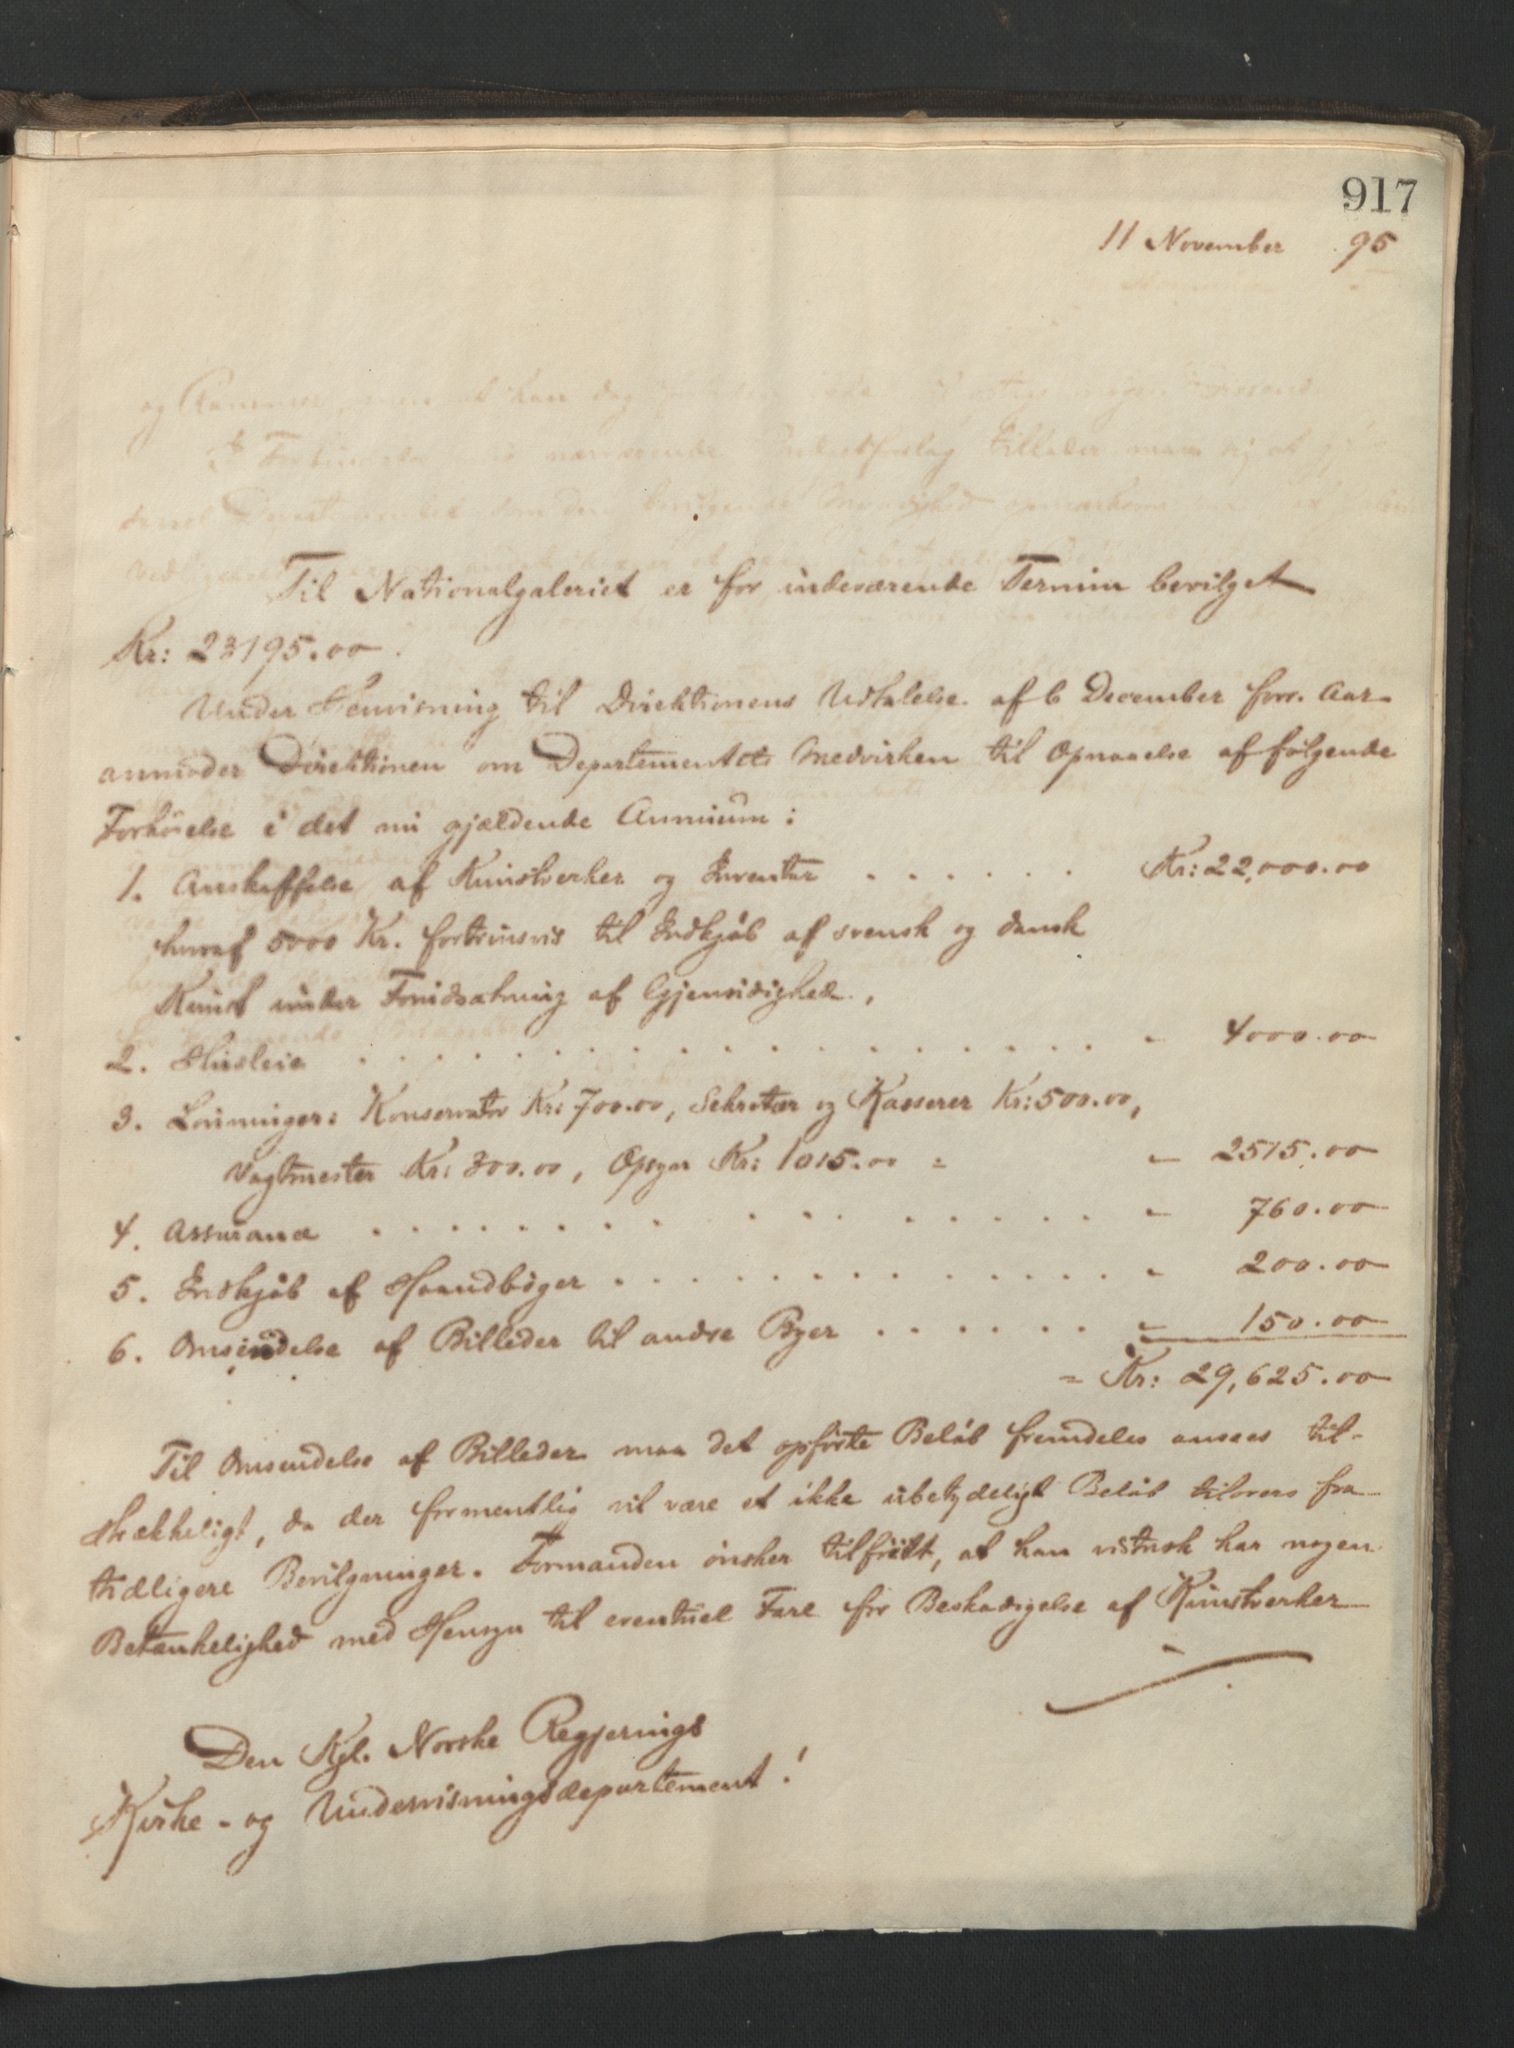 917
11 November 95
Til Nationalgaleriet er for indeværende Termin bevilget
Kr: 23195.00.
Under Henvisning til Direktionens Udtalelse af 6 December forr. Aar
anmoder Direktionen om Departementets Medvirken til Opnaaelse af følgende
Forhøielse i det nu gjældende Annuum:
1. Anskaffelse af Kunstverker og Inventar . . . . . . Kr: 22,000.00
hvoraf 5000 Kr. fortrinsvis til Indkjøb af svensk og dansk
Kunst under Forudsætning af Gjensidighed.,
2. Husleie . . . . . . . . . . . . . . . . - 4000.00
3. Lønninger: Konservator Kr: 700.00, Sekretær og Kasserer Kr: 500.00,
Vagtmester Kr: 300.00, Opsyn Kr: 1015.00 = - 2515.00
4. Assurance . . . . . . . . . . . . . . . . - 760.00
5. Indkjøb af Haandbøger . . . . . . . . . . . . . . - 200.00
6. Omsendelse af Billeder til andre Byer . . . . . . - 150.00
= Kr: 29,625.00
Til Omsendelse af Billeder maa det opførte Beløb fremdeles ansees til-
strækkeligt, da der formentlig vil være et ikke ubetydeligt Beløb tilovers fra
tidligere Bevilgninger. Formanden ønsker tilføiet, at han vistnok har nogen
Betænkelighed med Hensyn til eventuel Fare for Beskadigelse af Kunstverker
Den Kgl. Norske Regjerings
Kirke- og Undervisningsdepartement!